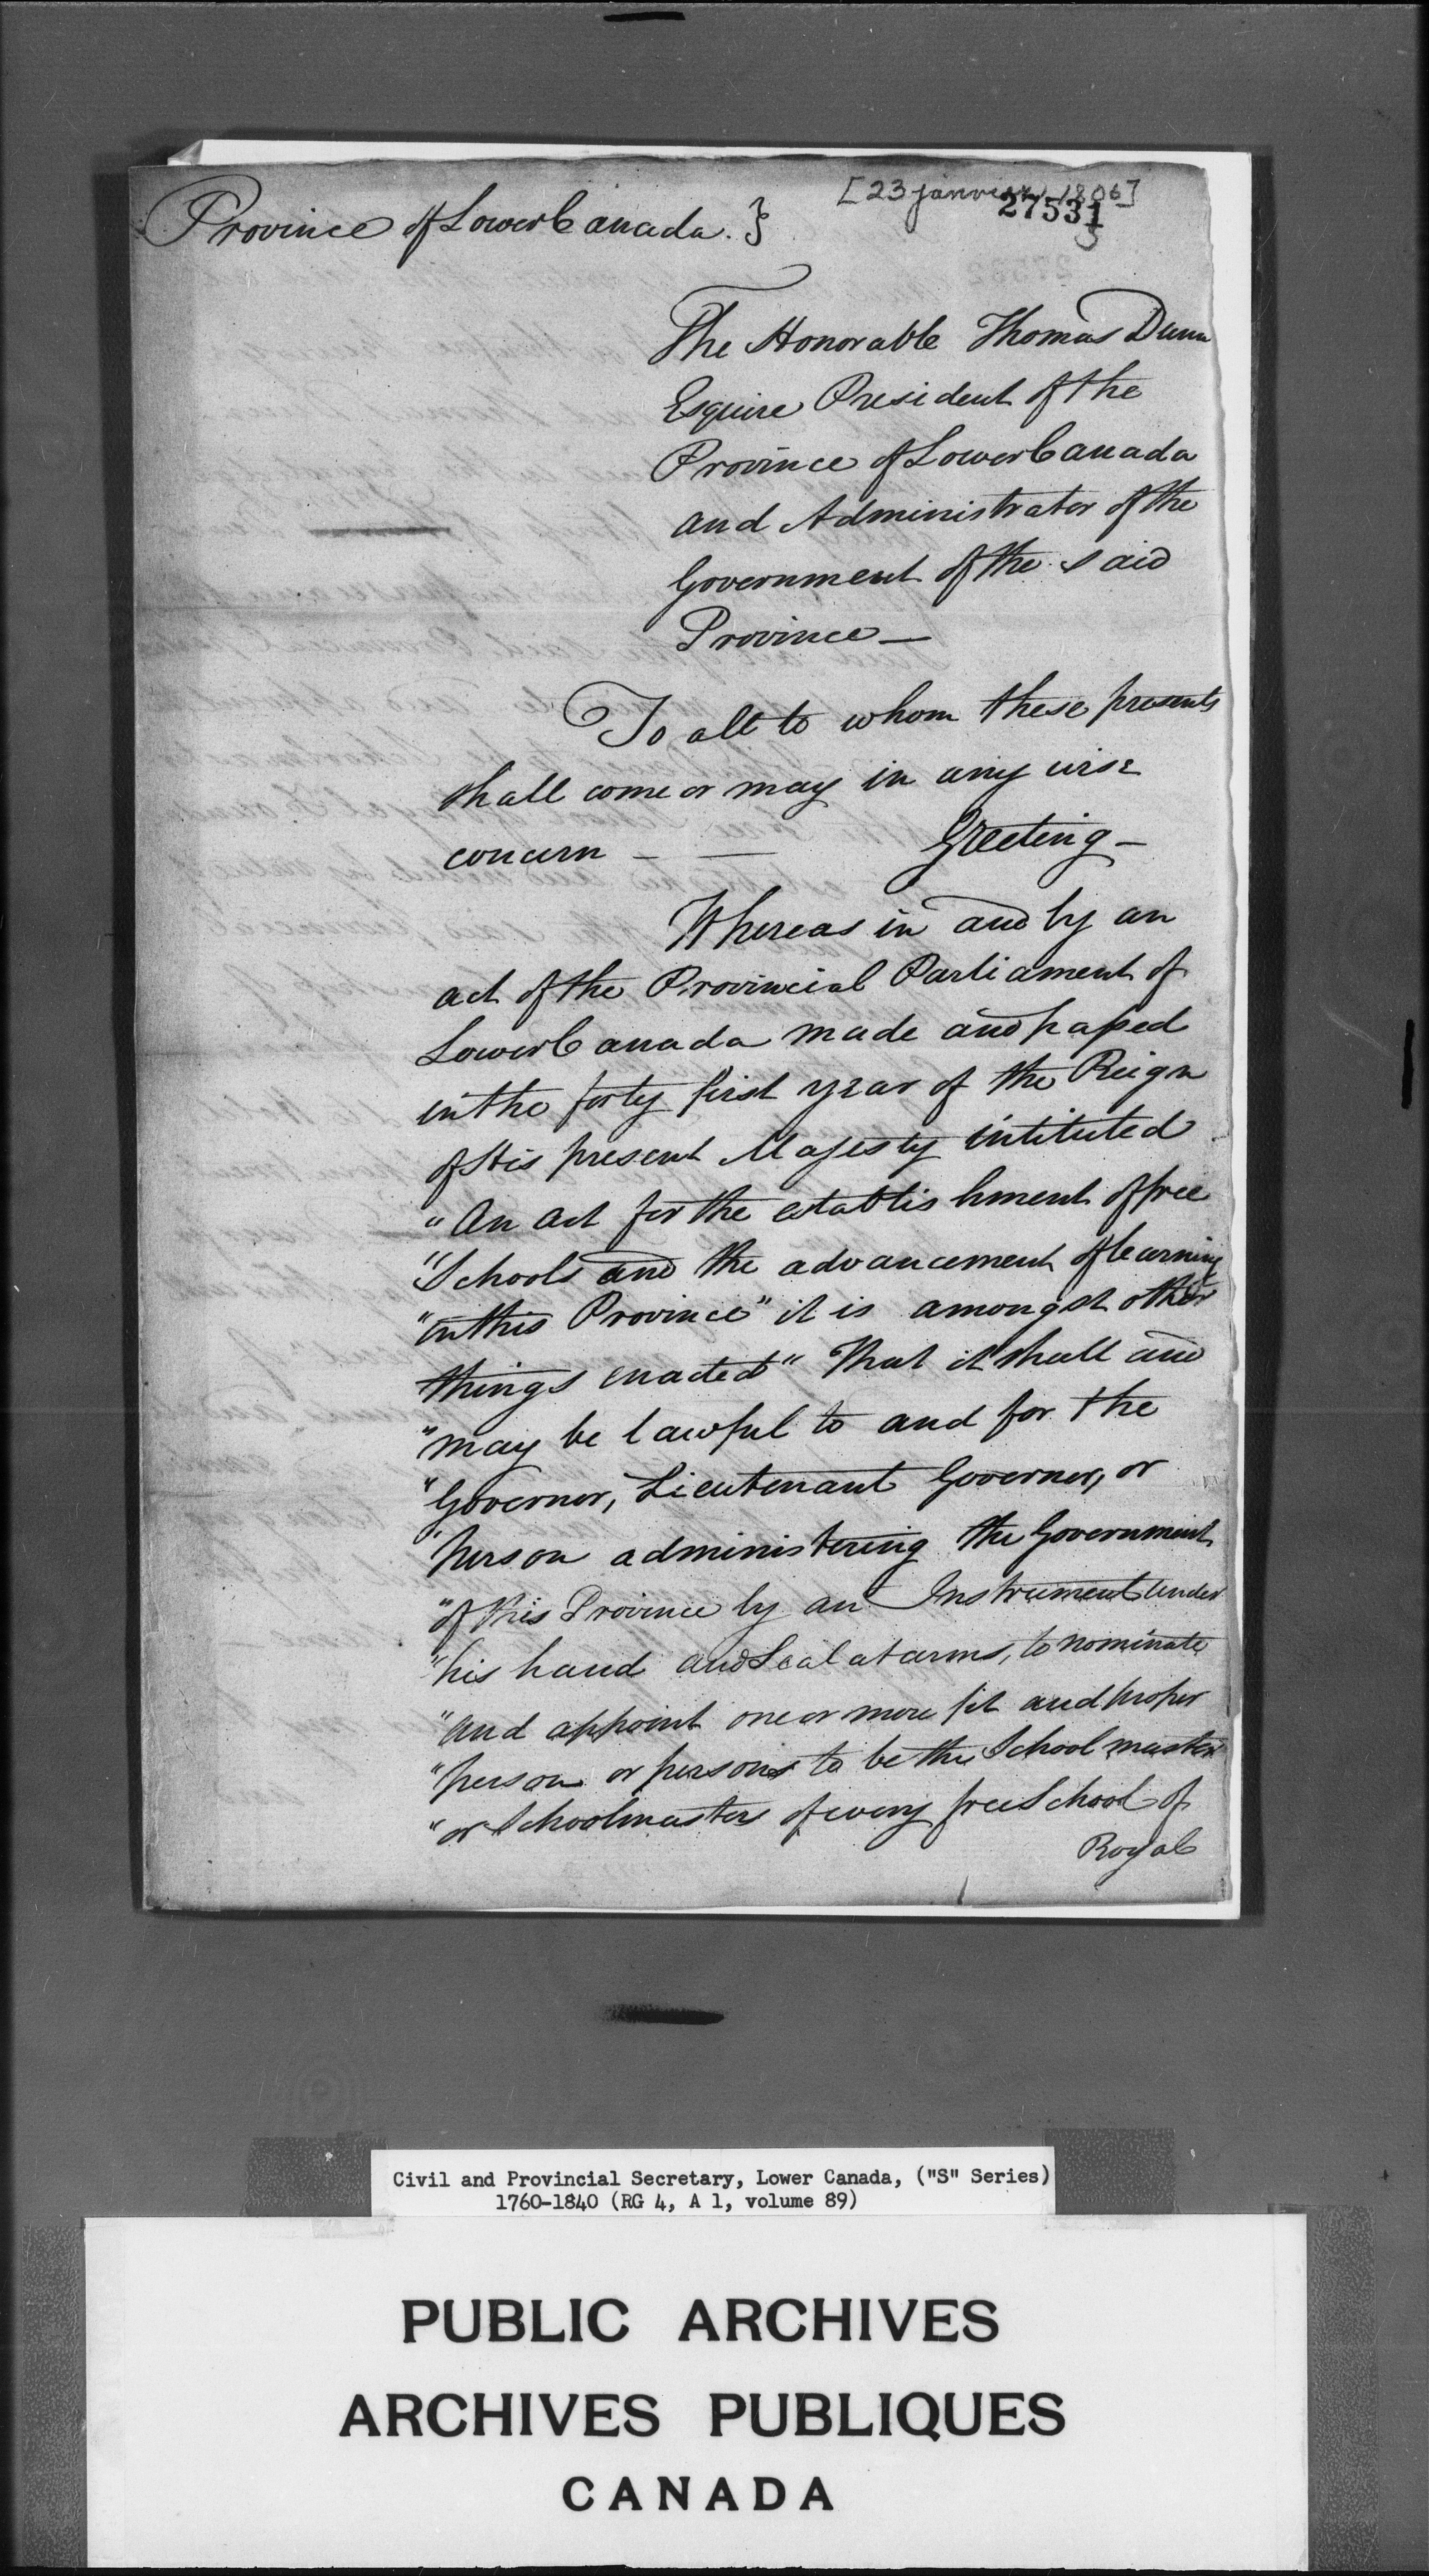 [23 janvier 1806]
27531
Province of Lower Canada. }
The Honorable Thomas Dunn
Esquire President of the
Province of Lower Canada
and Administrator of the
Government of the said
Province —
To all to whom these presents
shall come or may in any wise
concern — — Greeting —
Whereas in and by an
act of the Provincial Parliament of
Lower Canada made and passed
in the forty first year of the Reign
of His present Majesty intituled
"An Act for the establishment of free
"Schools and the advancement of learning
"in this Province" it is amongst other
things enacted "That it shall and
"may be lawful to and for the
"Governor, Lieutenant Governor, or
"Person administering the Government
"of this Province by an Instrument under
"his hand and Seal at arms, to nominate
"and appoint one or more fit and proper
"person or persons to be the School master
"or Schoolmasters of every free School of
Royal
Civil and Provincial Secretary, Lower Canada, ("S" Series)
1760-1840 (RG 4, A 1, volume 89)
PUBLIC ARCHIVES
ARCHIVES PUBLIQUES
CANADA